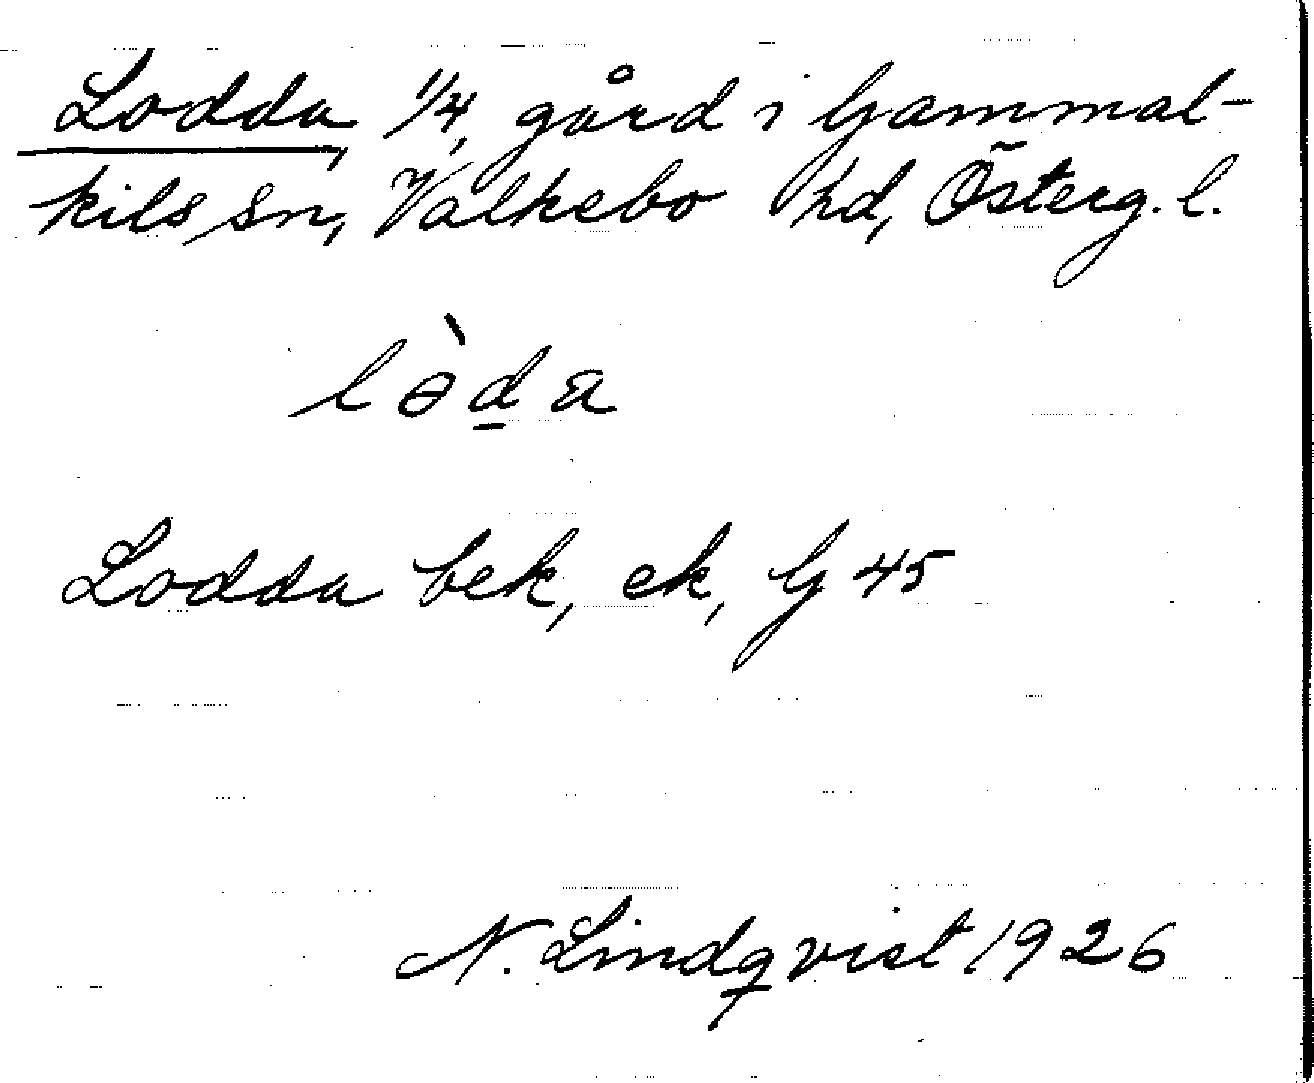 Lodda, 1/4, gård i Gammal-
kils sn, Valkebo hd, Österg. l.
lɵ̀da
Lodda bek, ek, G 45
N. Lindqvist 1926